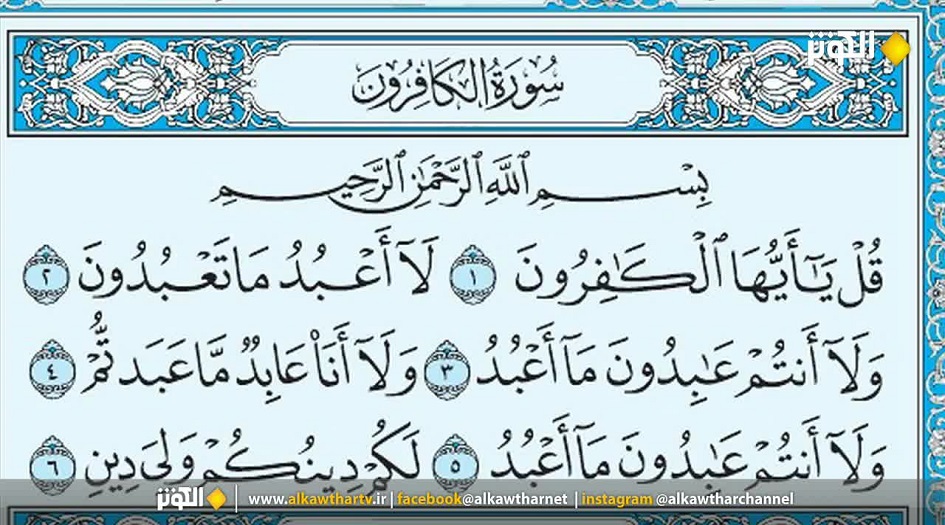 الكوثر
سُورَةُ الكَافِرُونَ
بِسْمِ ٱللَّهِ ٱلرَّحْمَٰنِ ٱلرَّحِيمِ
قُلْ يَـٰٓأَيُّهَا ٱلْكَـٰفِرُونَ ١ لَآ أَعْبُدُ مَا تَعْبُدُونَ ٢
وَلَآ أَنتُمْ عَـٰبِدُونَ مَآ أَعْبُدُ ٣ وَلَآ أَنَا۠ عَابِدٌ مَّا عَبَدتُّمْ ٤
وَلَآ أَنتُمْ عَـٰبِدُونَ مَآ أَعْبُدُ ٥ لَكُمْ دِينُكُمْ وَلِىَ دِينِ ٦
الكوثر | www.alkawthartv.ir | facebook@alkawtharnet | instagram @alkawtharchannel